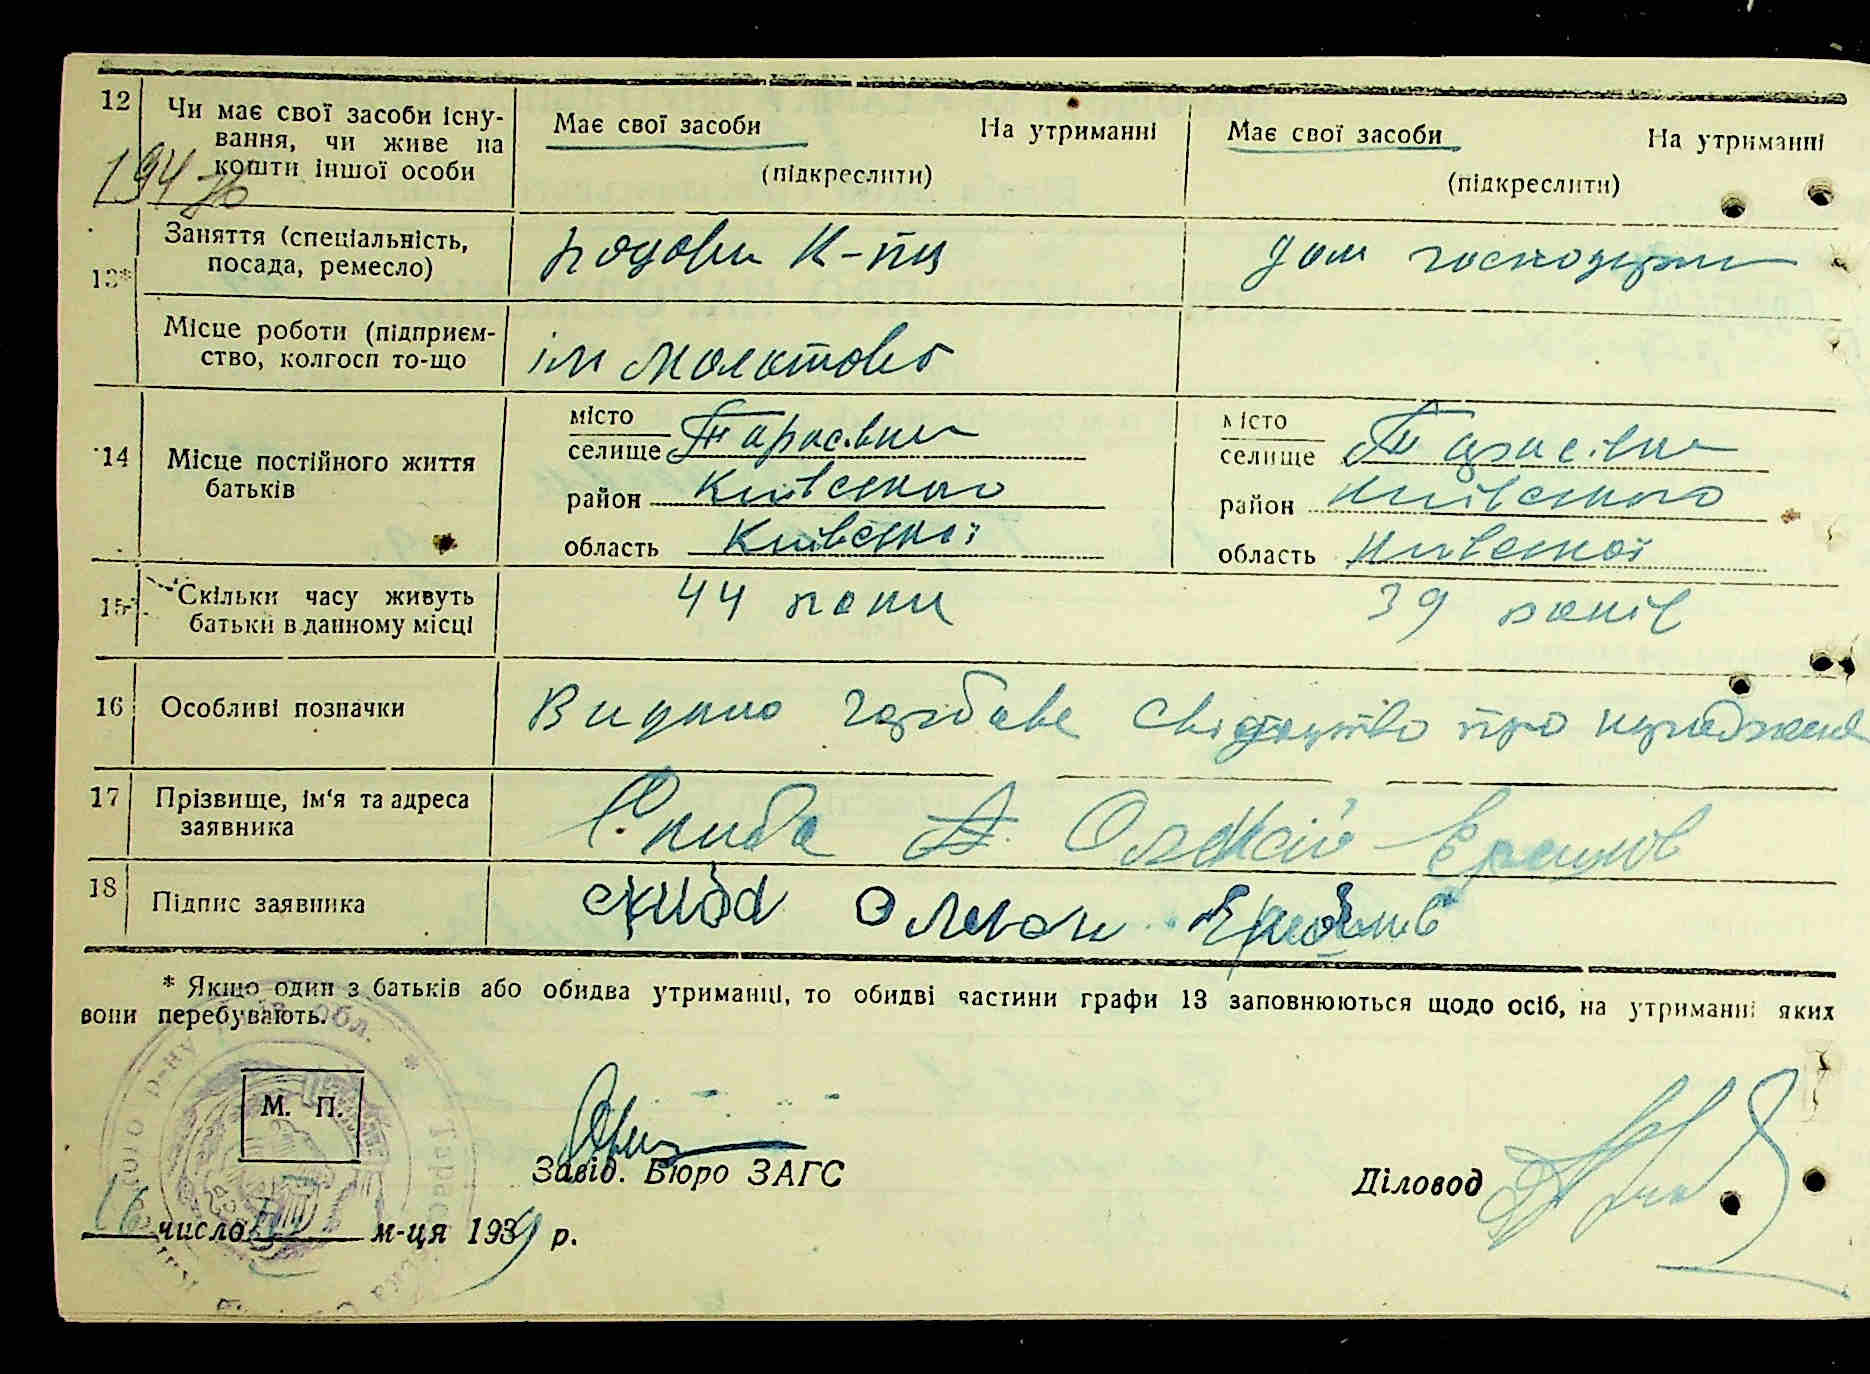 12 Чи має свої засоби існу-
вання, чи живе на
кошти іншої особи
Має свої засоби На утриманні
(підкреслити)
Має свої засоби На утриманні
(підкреслити)
13* Заняття (спеціальність,
посада, ремесло)
рядови к-пц
дом господарка
Місце роботи (підприєм-
ство, колгосп то-що
ім Молотова
14 Місце постійного життя
батьків
місто
селище Тарасівка
район Київського
область Київської
місто
селище Тарасівка
район Київського
область Київської
15 Скільки часу живуть
батьки в данному місці
44 роки
39 років
16 Особливі позначки
Видано гербове свідоцтво про народження
17 Прізвище, ім‘я та адреса
заявника
Скиба Олексій
18 Підпис заявника
скиба
* Якщо один з батьків або обидва утриманці, то обидві частини графи 13 заповнюються щодо осіб, на утриманні яких
вони перебувають.
М. П.
Завід. Бюро ЗАГС
Діловод
16 число м-ця 1939 р.